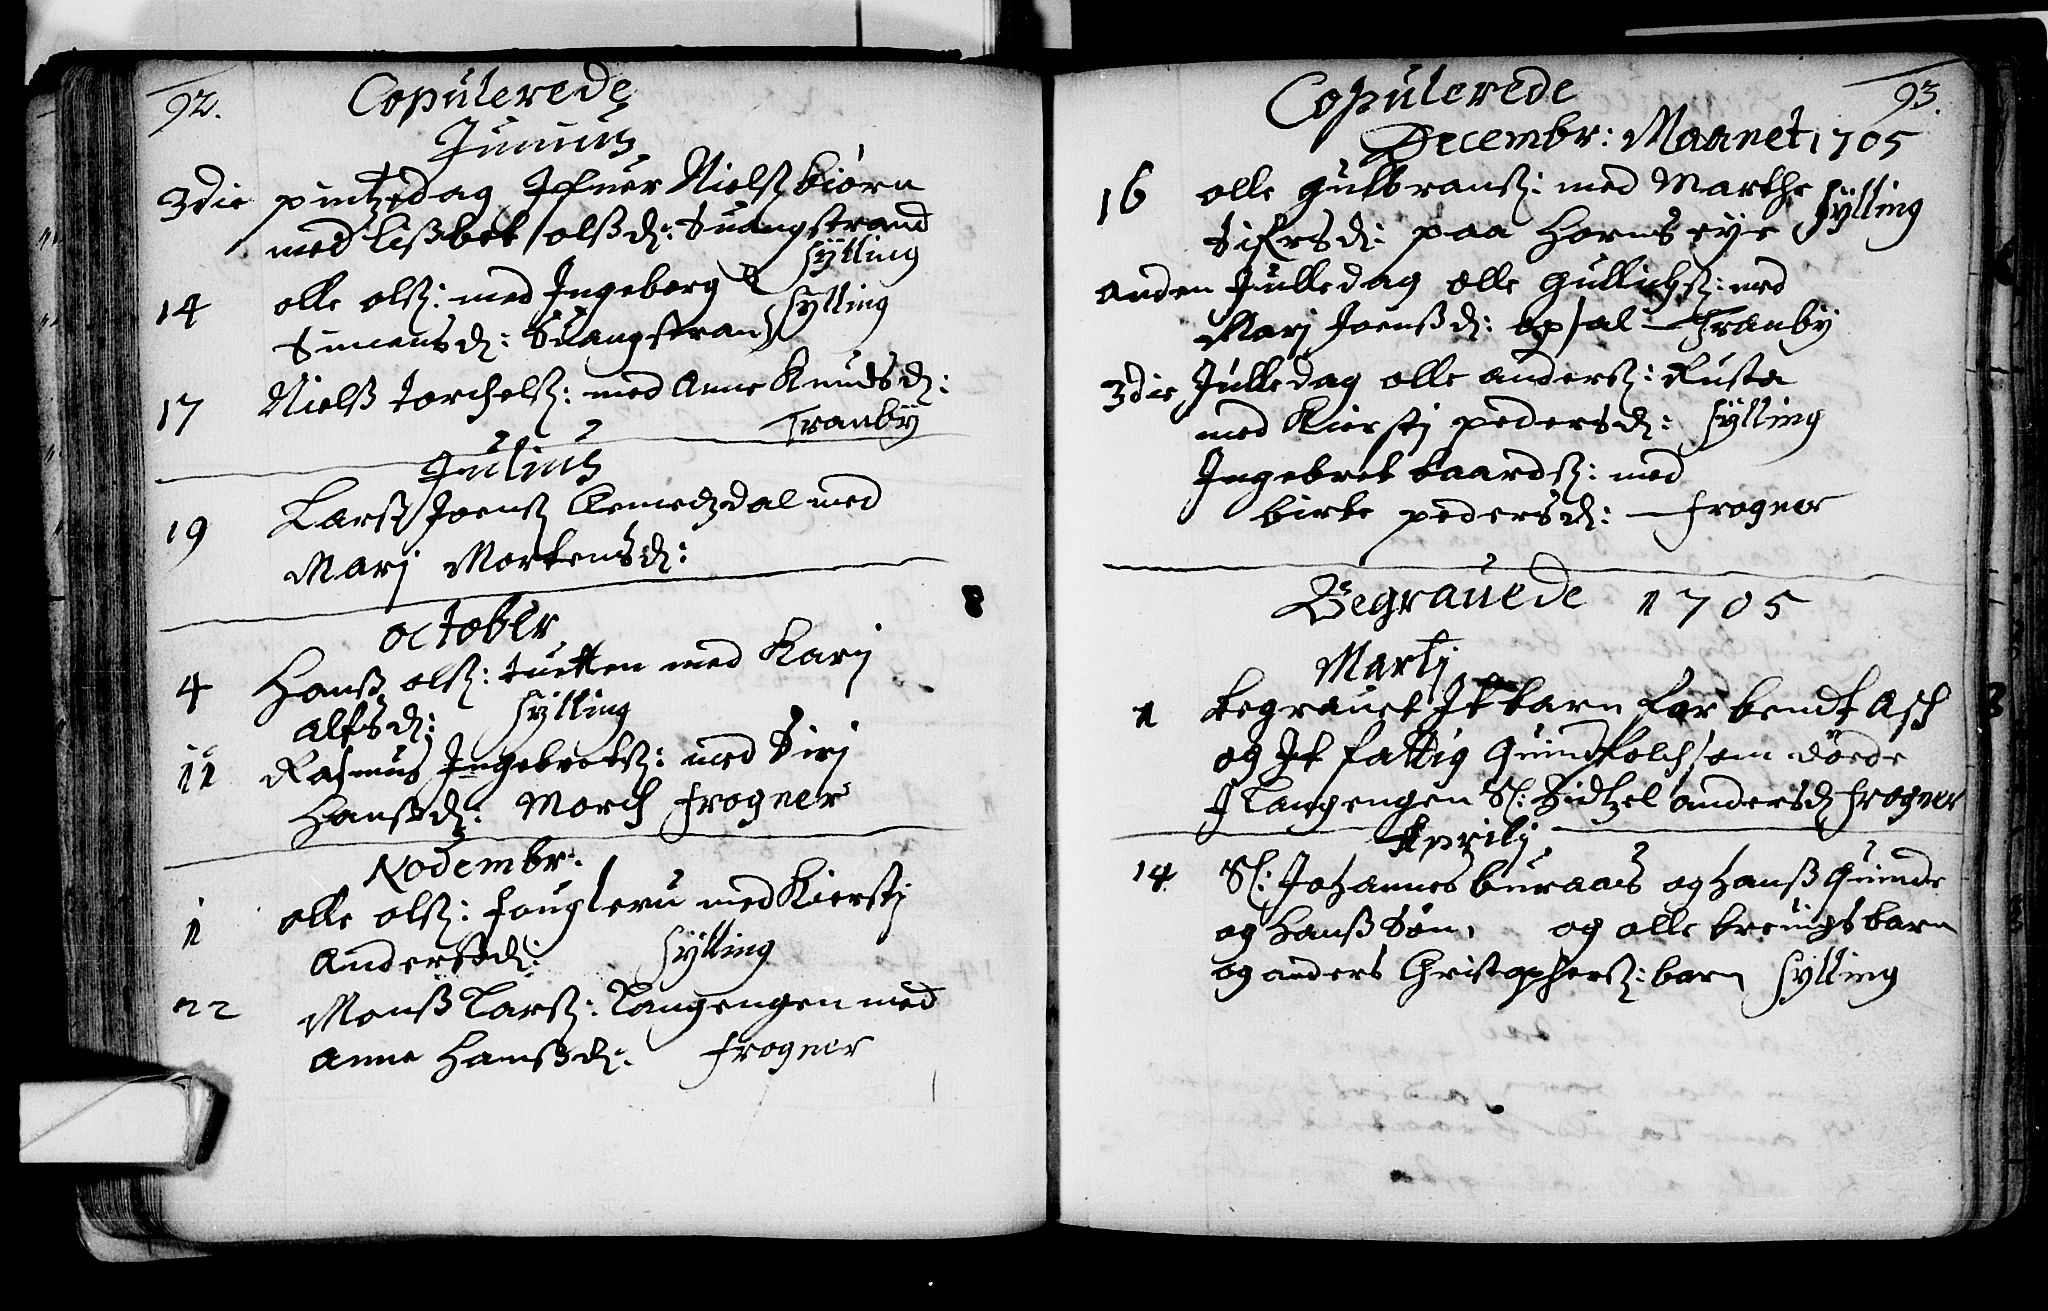 92.
Copulerede
Junius
3die pintzedag Ifuer Nielß: biørn
med Lißbet olßd: Suangstrand
Sylling
14 olle olß: med Ingeborg
Simensd: Suangstrand Sylling
17 Nielß Torchelß: med Anne Knudsd:
Tranby
Julius
19 Larß Joenß Clemedzdal med
Marj Mortensd:
October
4 Hanß olß: tuetten med Karj
alfsd: Sylling
11 Rasmus Ingebretß: med Sirj
Hanßd: Morch frogner
Novembr:
1 olle olß: fougleru med Kierstj
Anderßd: Sylling
22 Monß Larß: Langengen med
Anne Hanßd: frogner
93.
Copulerede
Decembr: Maanet 1705
16 olle gulbranß: med Marthe
Sifersd: paa Hornseye Sylling
anden Julledag olle gullichß: med
Marj Joenßd: opsal — Tranby
3die Julledag olle anderß: Rusta
med Kierstj pedersd: Sylling
Ingebret baardß: med
birte pedersd: — frogner
Begrauede 1705
Martj
1 begrauet It barn for bendt Ask
og It fattig quindfolch som døede
I Langengen Sl: Sidtzel andersd frogner
Aprilj
14 Sl: Johannes buraas og Hanß Quinde
og Hanß Søn, og olle breuigs barn
og anders Christopherß: barn Sylling